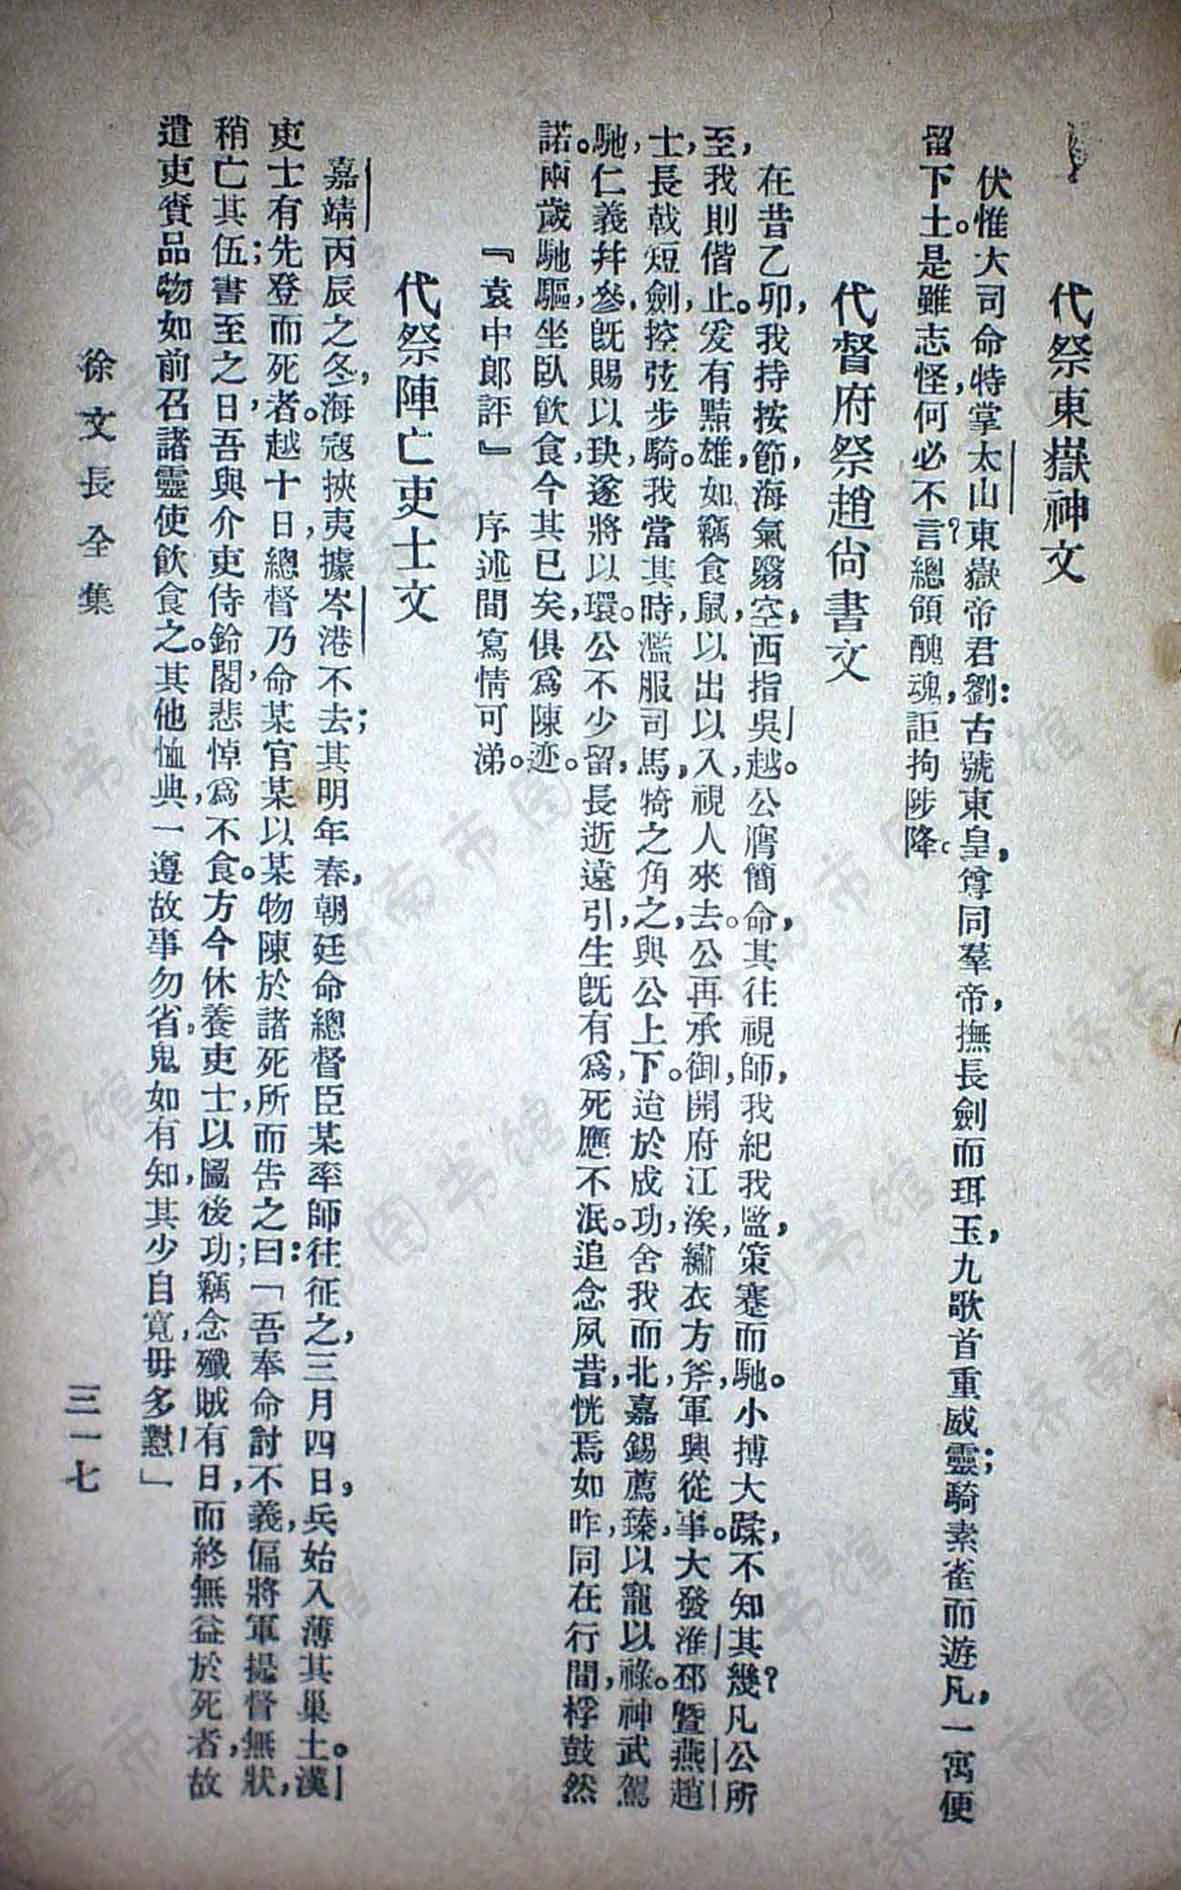 代祭東嶽神文
伏惟大司命特掌太山東嶽帝君劉：古號東皇，尊同羣帝，撫長劍而珥玉，九歌首重威靈；騎素雀而遊凡，一寓便
留下土。是雖志怪，何必不言？總領醜魂，詎拘陟降。
代督府祭趙尙書文
在昔乙卯，我持按節，海氣翳空，西指吳越。公膺簡命，其往視師，我紀我監，策蹇而馳。小搏大蹂，不知其幾？凡公所
至，我則偕止。爰有黠雄，如竊食鼠，以出以入，視人來去。公再承御，開府江涘，繡衣方斧，軍興從事。大發淮邳，曁燕趙
士，長戟短劍，控弦步騎。我當其時，濫服司馬，犄之角之，與公上下。迨於成功，舍我而北，嘉錫薦臻，以寵以祿。神武駕
馳，仁義幷參，旣賜以玦，遂將以環。公不少留，長逝遠引，生旣有爲，死應不泯。追念夙昔，恍焉如昨，同在行間，桴鼓然
諾。兩歲馳驅，坐臥飲食，今其已矣，俱爲陳迹。
『袁中郎評』　序述間寫情可涕。
代祭陣亡吏士文
嘉靖丙辰之冬，海寇挾夷據岑港不去；其明年春，朝廷命總督臣某率師往征之，三月四日，兵始入薄其巢土。漢
吏士有先登而死者。越十日，總督乃命某官某以某物陳於諸死所而告之曰：「吾奉命討不義，偏將軍提督無狀，
稍亡其伍；書至之日，吾與介吏侍鈴閣，悲悼爲不食。方今休養吏士，以圖後功；竊念殲賊有日，而終無益於死者，故
遣吏賷品物如前，召諸靈使飲食之。其他恤典，一遵故事勿省，鬼如有知，其少自寬，毋多懟！」
徐文長全集
三一七